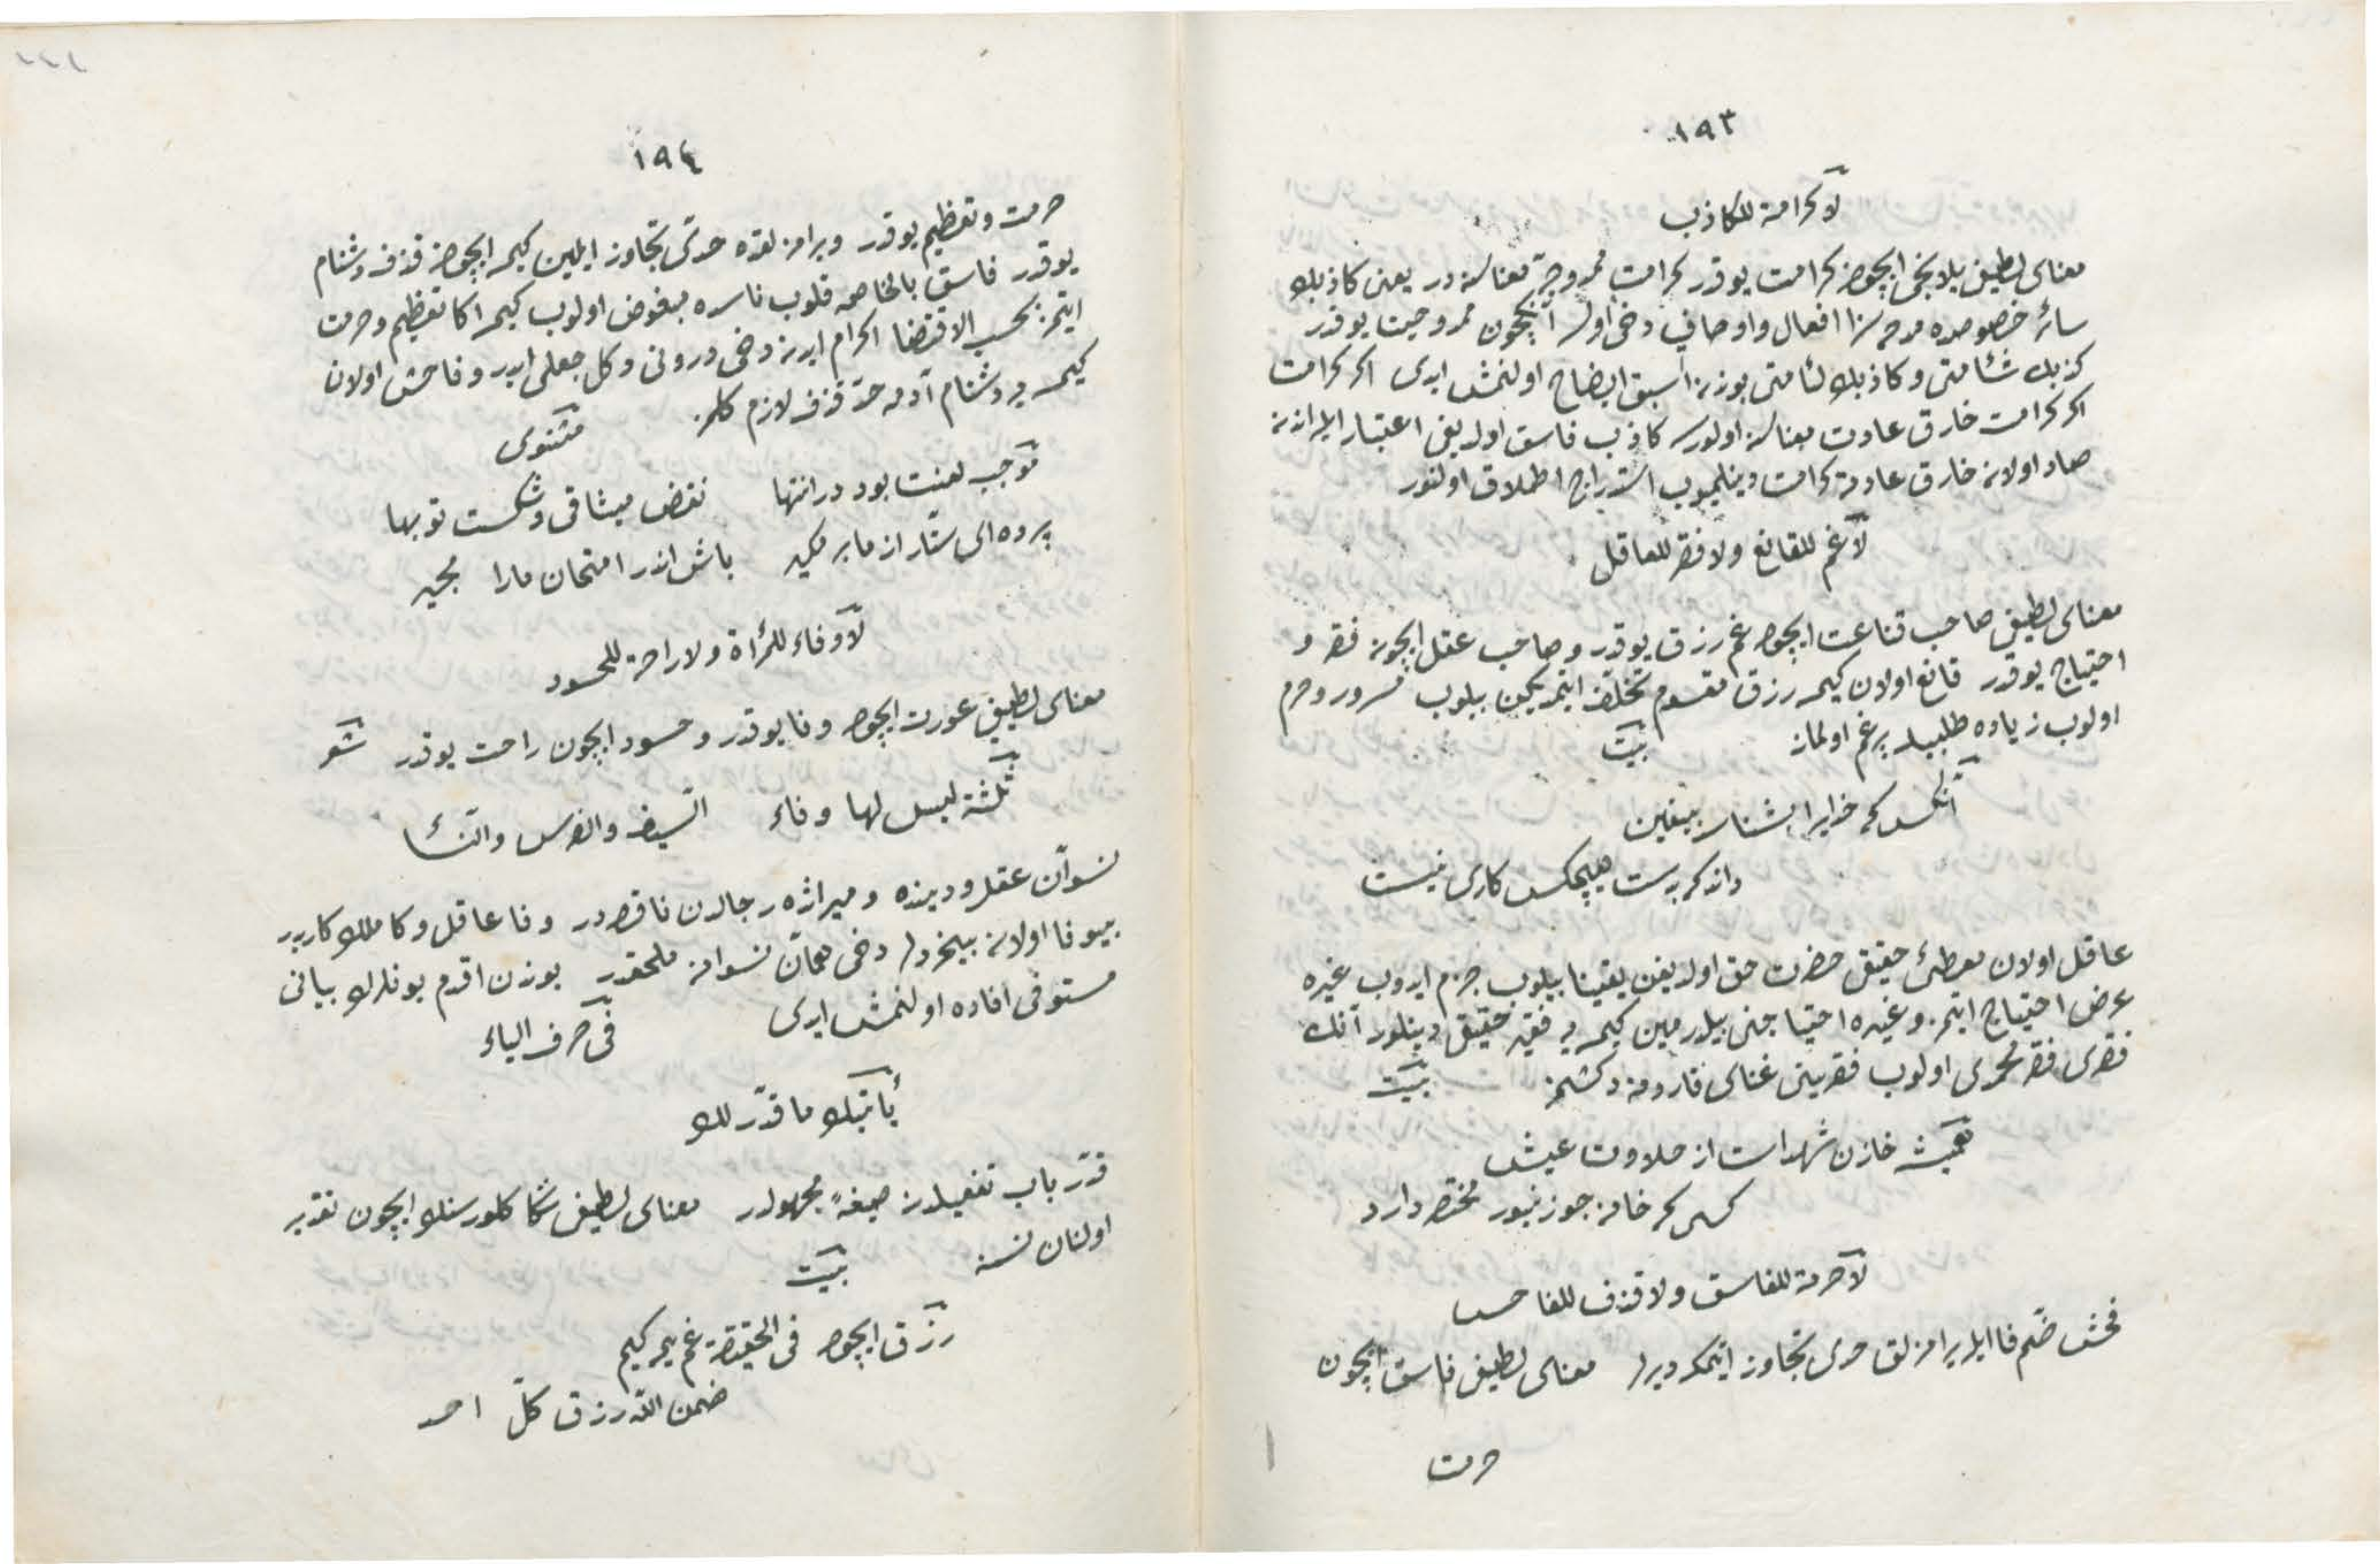 ١٩٣
لا كرامة للكاذب
معناى لطيفى يلانجى ايچون كرامت يوقدر كرامت ممروحيت معناسنه در يعنى كاذبك
سائر خصوصده مدحه سزا افعال واوصافى دخى اولسه آنكچون ممدوحيت يوقدر
كذبك شئامتى وكاذبك لئامتى بوندن اسبق ايضاح اولنمش ايدى اكر كرامت
اكر كرامت خارق عادت معناسنه اولورسه كاذب فاسق اولديغى اعتبار ايله اندن
صادر اولان خارق عادته كرامت دينلميوب استدراج اطلاق اولنور
لا غم للقانع ولا فقر للعاقل
معناى لطيفى صاحب قناعت ايچون غم رزق يوقدر وصاحب عقل ايچون فقر و
احتياج يوقدر قانع اولان كيمسه رزق مقسوم تخلف ايتمديكين بيلوب مسرور وخرم
اولوب زياده طلبيله پرغم اولماز بيت
آنكس كه خدايرا شناسد بيقين
داند كه بدست هيچكس كارى نيست
عاقل اولان معطئ حقيقى حضرت حق اولديغن يقينا بيلوب جزم ايدوب غيره
عرض احتياج ايتمز وغيره احتياجنى بيلدرميين كيمسه يه فقير حقيقى دينلور آنك
فقرى فقر محمدى اولوب فقرينى غناى قارونه دكشمز بيت
هميشه خازن شهداست از حلاوت عيش
كسى كه خانه چو زنبور مختصر دارد
لا حرمة للفاسق ولا قذف للفاحش
فحش ضم فا ايله يرامزلق حدى تجاوز ايتمكه ديرلر معناى لطيفى فاسق ايچون
حرمت
١٩٤
حرمت وتعظيم يوقدر ويرامزلقده حدى تجاوز ايلين كيمسه ايچون قذف ودشنام
يوقدر فاسق بالخاصه قلوب ناسده مبغوض اولوب كيمسه اكا تعظيم وحرمت
ايتمز بحسب الاقتضا اكرام ايدن دخى درونى دكل جعلى ايدر وفاحش اولان
كيمسه يه دشنام آدمه حد قذف لازم كلمز مثنوى
موجب لعنت بود در انتها نقض ميثاق وشكست توبها
پرده اى ستار از ما بر مكير باش اندر امتحان ما را مجير
لا وفاء للمرأة ولا راحة للحسود
معناى لطيفى عورت ايچون وفا يوقدر وحسود ايچون راحت يوقدر شعر
ثلثة ليس لها وفاء السيف والفرس والنسا
نسوان عقل ودينده وميراثده رجالدن ناقصدر وفا عاقل وكامللك كاريدر
بيوفا اولان بيخردلر دخى همان نسوانه ملحقدر بوندن اقدم بونلرك بيانى
مستوفى افاده اولنمش ايدى فى حرف الياء
يأتيك ما قدّر لك
قدّر باب تفعيلدن صيغۀ مجهولدر معناى لطيفى سكا كلور سنك ايچون تقدير
اولنان نسنه بيت
رزق ايچون فى الحقيقة غم يمه كيم
ضمن الله رزق كلّ احد